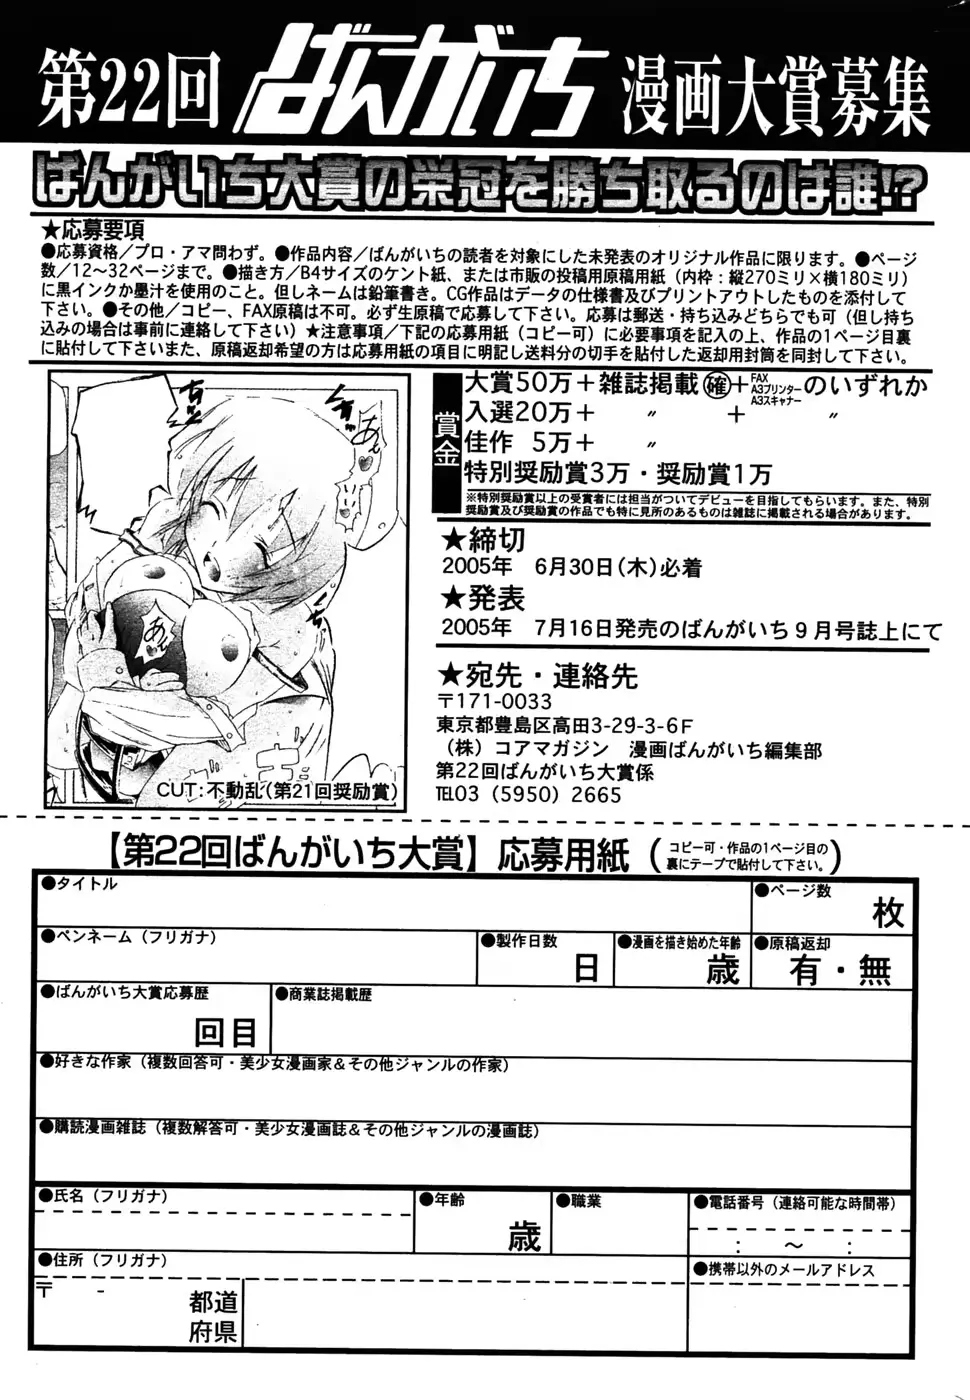 第22回 ばんがいち 漫画大賞募集
ばんがいち大賞の栄冠を勝ち取るのは誰!?
★応募要項
●応募資格／プロ・アマ問わず。●作品内容／ばんがいちの読者を対象にした未発表のオリジナル作品に限ります。●ページ
数／12～32ページまで。●描き方／B4サイズのケント紙、または市販の投稿用原稿用紙（内枠：縦270ミリ×横180ミリ）
に黒インクか墨汁を使用のこと。但しネームは鉛筆書き。CG作品はデータの仕様書及びプリントアウトしたものを添付して
下さい。●その他／コピー、FAX原稿は不可。必ず生原稿で応募して下さい。応募は郵送・持ち込みどちらでも可（但し持ち
込みの場合は事前に連絡して下さい）★注意事項／下記の応募用紙（コピー可）に必要事項を記入の上、作品の1ページ目裏
に貼付して下さいまた、原稿返却希望の方は応募用紙の項目に明記し送料分の切手を貼付した返却用封筒を同封して下さい。
あん
あん
CUT:不動乱(第21回奨励賞)
賞金
大賞50万＋雑誌掲載 確＋FAX A3プリンター A3スキャナー のいずれか
入選20万＋ 〃 ＋ 〃
佳作 5万＋ 〃
特別奨励賞3万・奨励賞1万
※特別奨励賞以上の受賞者には担当がついてデビューを目指してもらいます。また、特別
奨励賞及び奨励賞の作品でも特に見所のあるものは雑誌に掲載される場合があります。
★締切
2005年 6月30日(木)必着
★発表
2005年 7月16日発売のばんがいち９月号誌上にて
★宛先・連絡先
〒171-0033
東京都豊島区高田3-29-3-6F
（株）コアマガジン 漫画ばんがいち編集部
第22回ばんがいち大賞係
℡03（5950）2665
【第22回ばんがいち大賞】応募用紙（コピー可・作品の1ページ目の
裏にテープで貼付して下さい。）
●タイトル
●ページ数
枚
●ペンネーム（フリガナ）
●製作日数
日
●漫画を描き始めた年齢
歳
●原稿返却
有・無
●ばんがいち大賞応募歴
回目
●商業誌掲載歴
●好きな作家（複数回答可・美少女漫画家＆その他ジャンルの作家）
●購読漫画雑誌（複数解答可・美少女漫画誌＆その他ジャンルの漫画誌）
●氏名（フリガナ）
●年齢
歳
●職業
●電話番号（連絡可能な時間帯）
： ～ ：
●住所（フリガナ）
〒 -
都道
府県
●携帯以外のメールアドレス